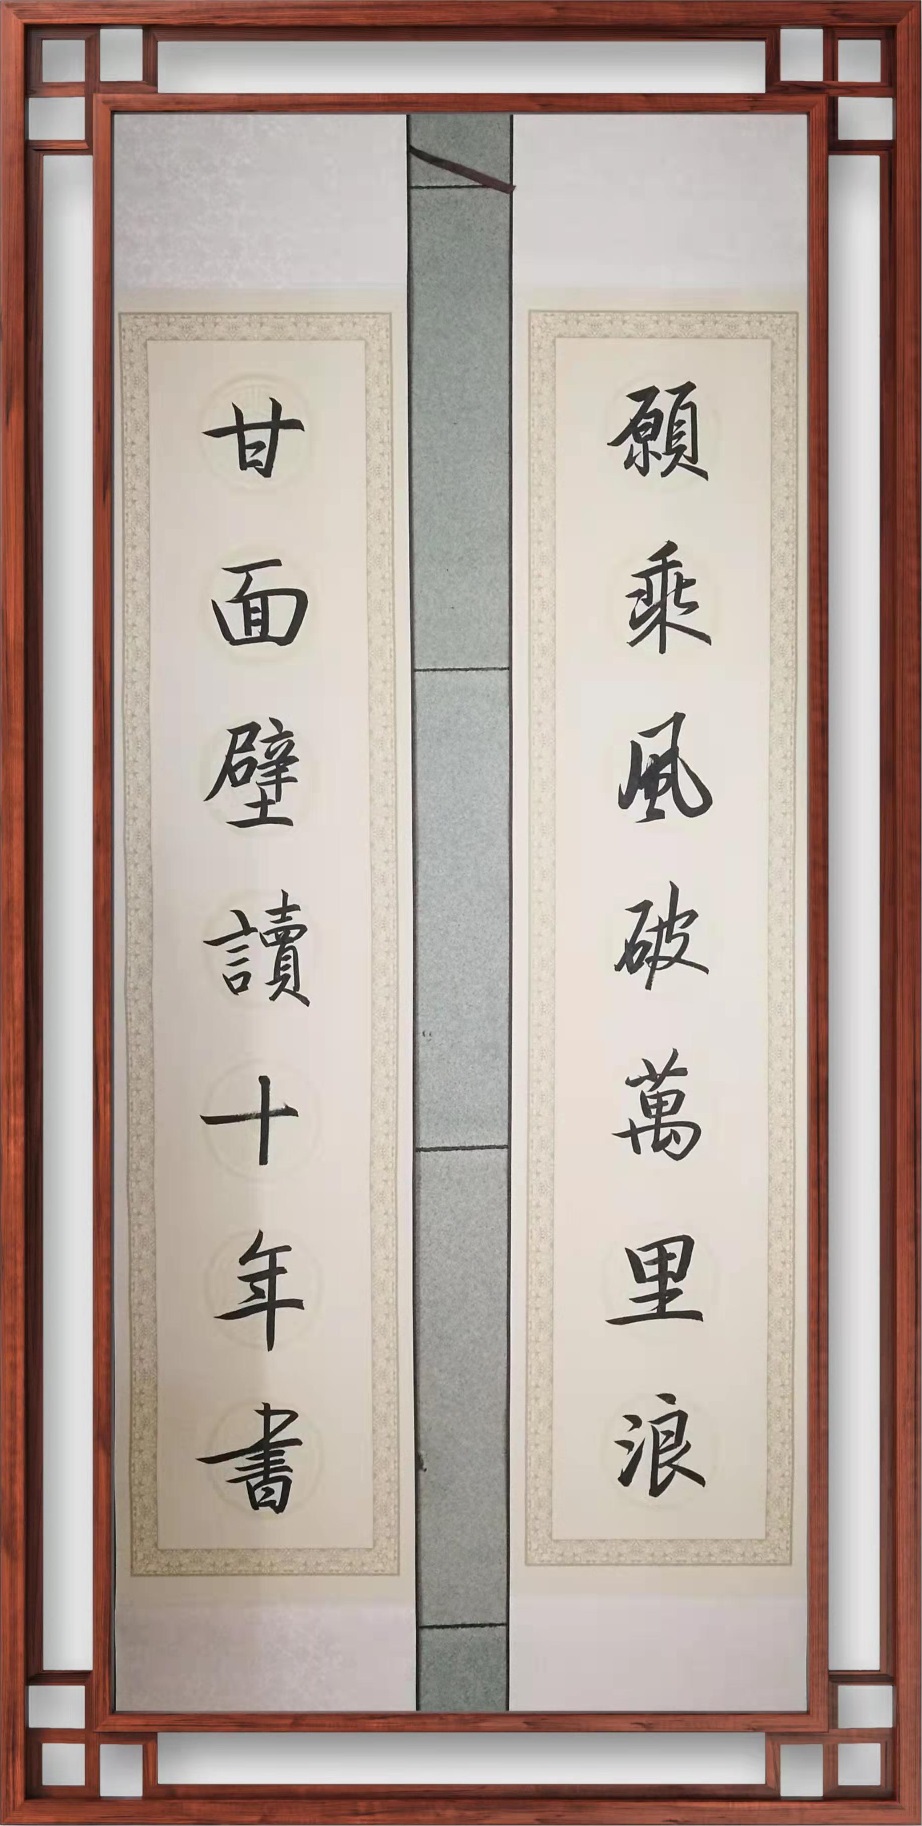 願乘風破萬里浪
甘面壁讀十年書